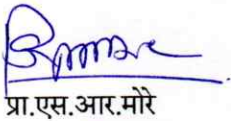 प्रा.एस.आर.मोरे